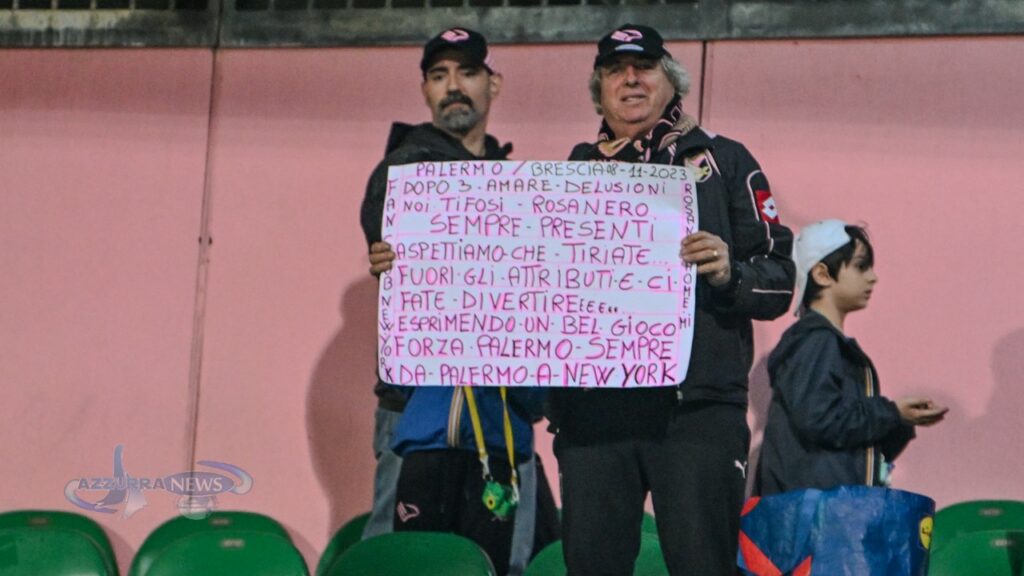 PALERMO / BRESCIA 08-11-2023
DOPO 3-AMARE-DELUSIONI
NOI TIFOSI - ROSANERO
SEMPRE-PRESENTI
ASPETTIAMO-CHE-TIRIATE...
FUORI-GLI-ATTRIBUTI-E-CI-
FATE-DIVERTIREE.E.E...
ESPRIMENDO-UN-BEL-GIOCO
FORZA-PALERMO-SEMPRE
DA-PALERMO-A-NEW YORK
FAN CLUB NEW YORK
AZZURRA NEWS